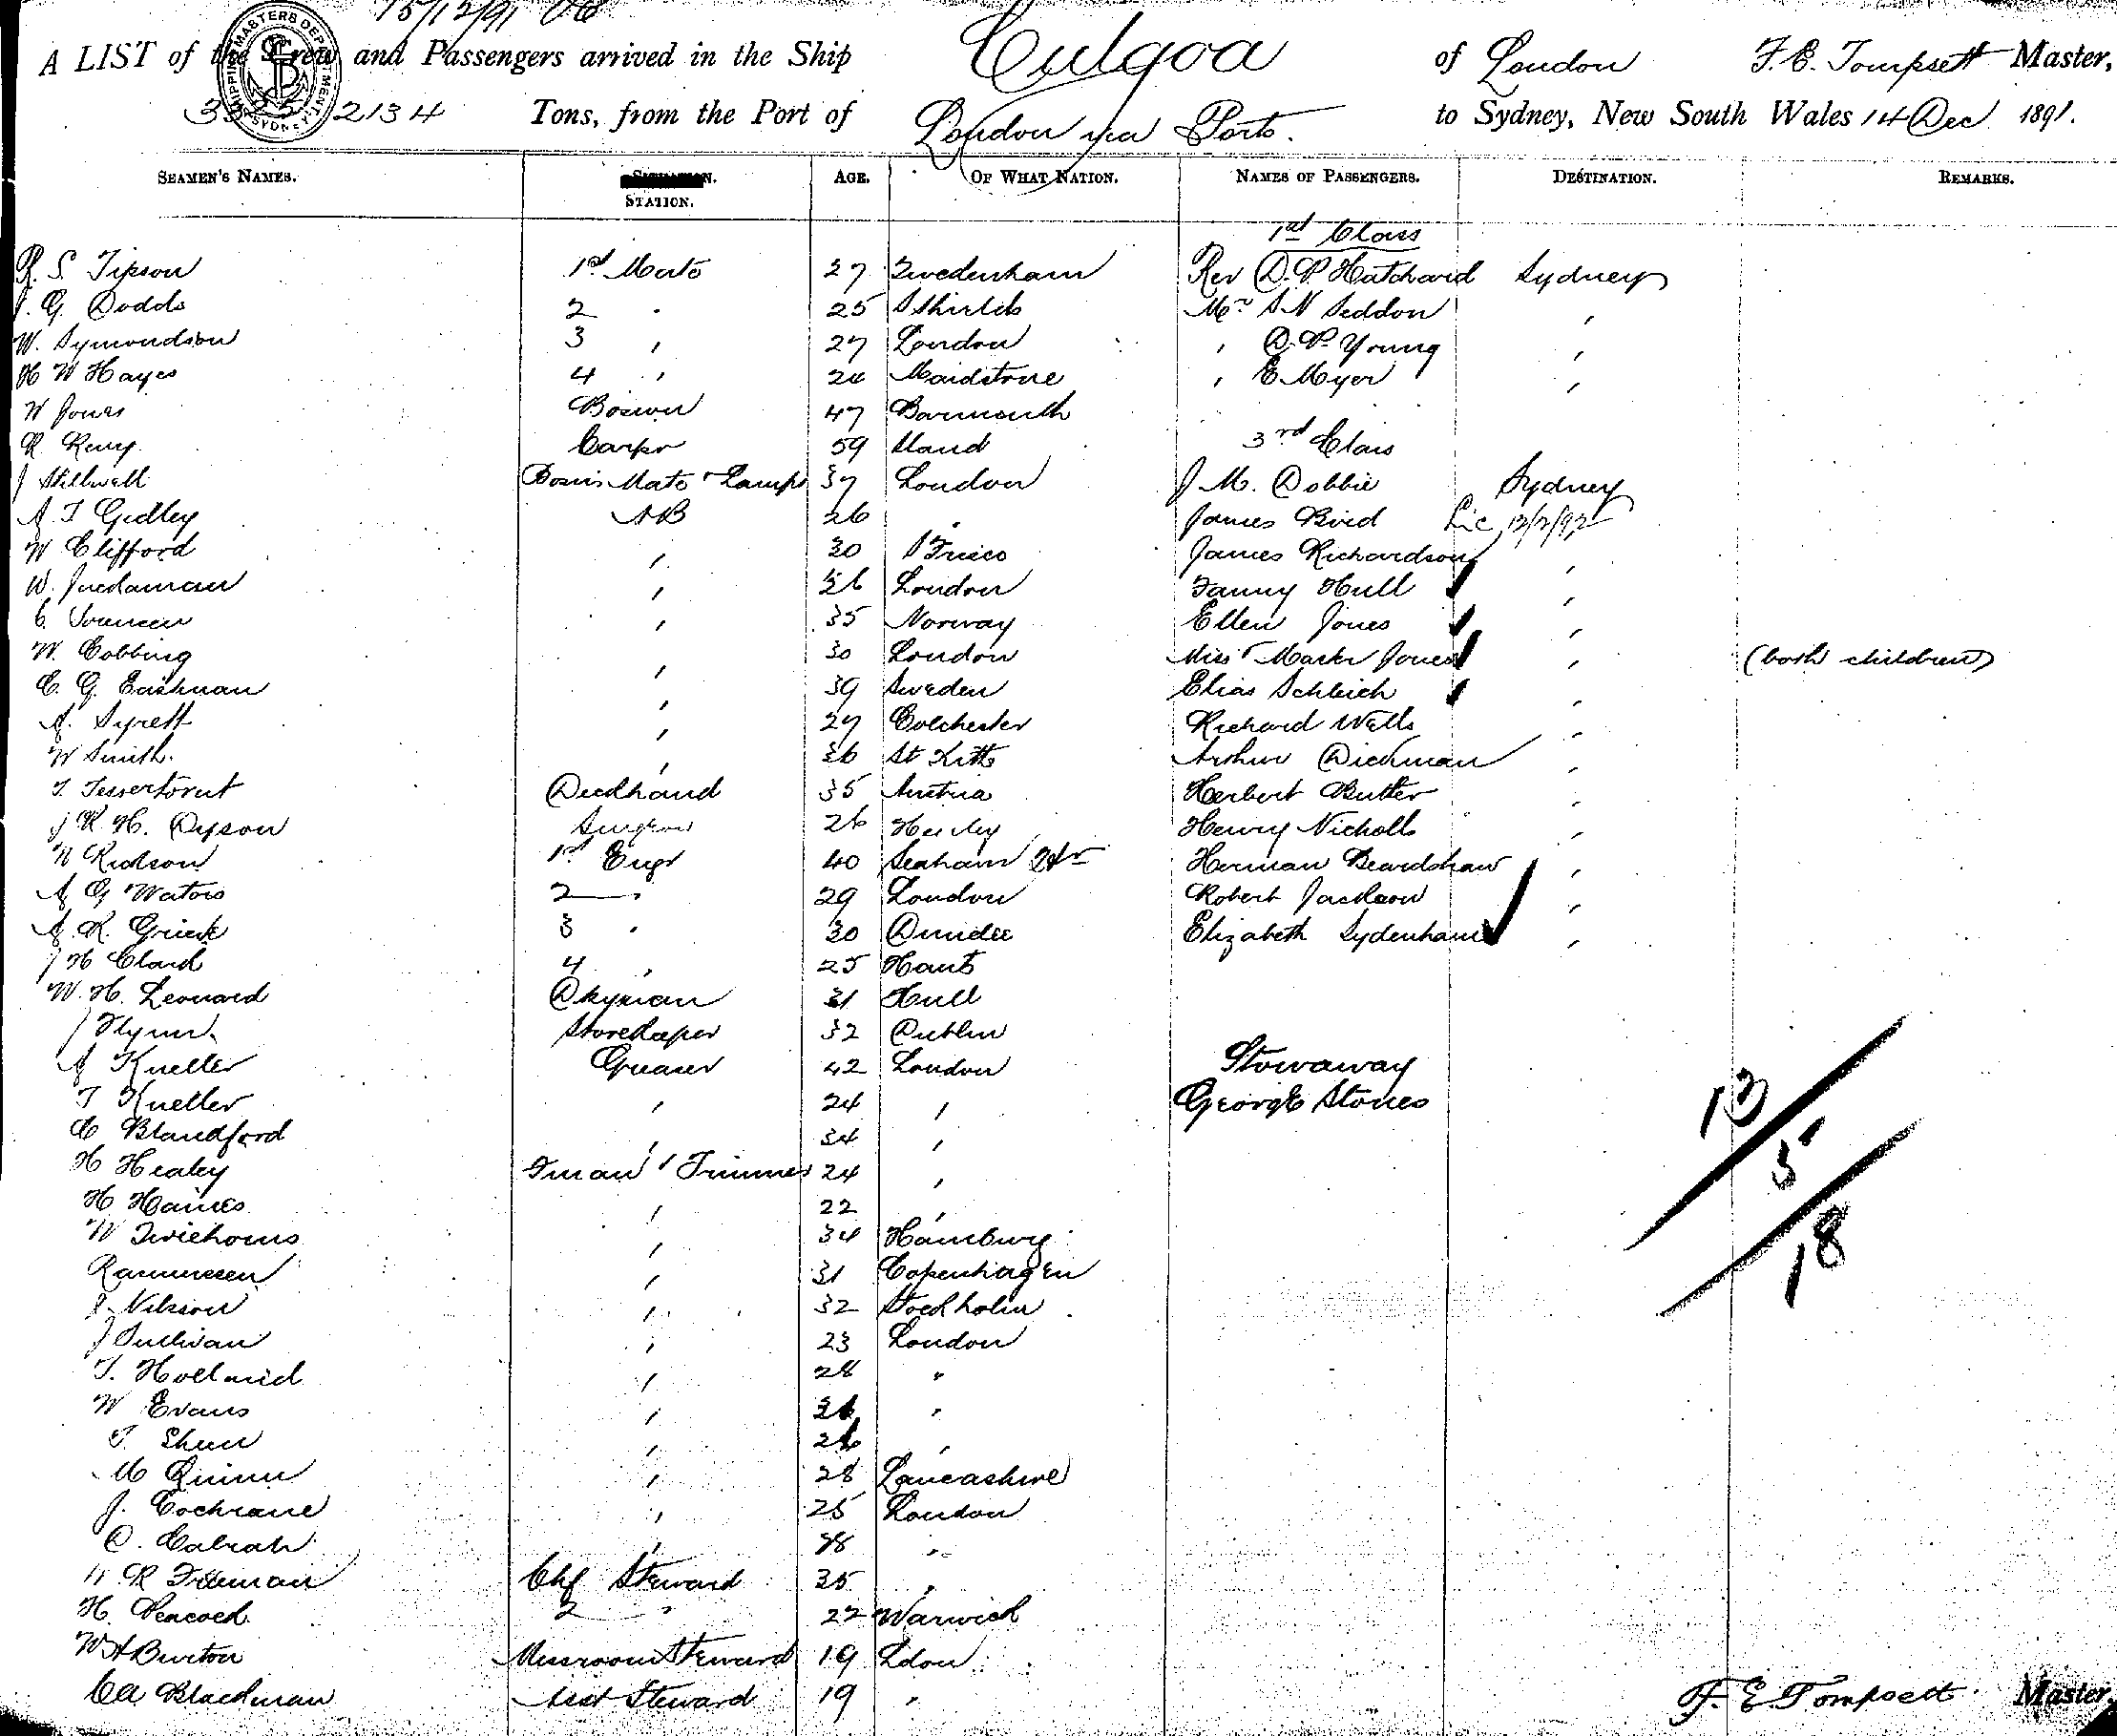 15/12/91
SHIPPING MASTERS DEPARTMENT SYDNEY
A LIST of the Crew and Passengers arrived in the Ship Culgoa of London F. E. Tompsett Master,
2134 Tons, from the Port of London via Ports. to Sydney, New South Wales 14 Dec 1891.
SEAMEN'S NAMES. STATION. AGE. OF WHAT NATION. NAMES OF PASSENGERS. DESTINATION. REMARKS.
1st Class
R. S. Tipson 1st Mate 27 Rev D. P. Hatchard Sydney
J. G. Dodds 2 " 25 S Shields Mr S N Seddon "
W. Symondson 3 " 27 London " D. P. Young "
H W Hayes 4 " Maidstone " E Myer "
W Jones Bosun 47 Barmouth
R. Carpr 59 3rd Class
J Stillwell Bosuns Mate & Lamps 37 London J M. Dobbie Sydney
A. T Gidley AB 26 " James Bird Lic 12/2/92
W Clifford " 30 S Frisco James Richardson "
W. " 26 London Fanny Hull "
" 35 Norway Ellen Jones "
W. Cobbing " 30 London Miss & Master Jones " (both children)
C. G. Eastman " 39 Sweden Elias Schleich "
A. Syrett " 27 Colchester Richard Wells "
W Smith. " 36 St Kitts Arthur Dickman "
Deckhand 35 Austria Herbert Butler "
J R. H. Dyson Surgeon 26 Henry Nicholls "
1st Engr 40 Seaham Hr Herman Beardshaw "
A G Waters 2 " 29 London Robert Jackson "
A. R. 3 " 30 Dundee Elizabeth Sydenham "
J H Clark 4 " 25 Hants
W. H. Leonard Dkyman 31 Hull
J Flynn Storekeeper 32 Dublin
A Kneller Greaser 42 London Stowaway
T Kneller " 24 " George Stones
C Blandford " 34 "
H Healey Fman & Trimmer 24 "
H Haines " 22 "
W " 34 Hamburg
Rasmussen " 31 Copenhagen
J Nilsson " 32 Stockholm
J Sullivan " 23 London
T. " 28 "
W Evans " "
T. " 26 "
M Quinn " 28 Lancashire
J. Cochrane " 25 London
" 28 "
W. R Freeman Chf Steward 35 "
H. Peacock 2 " 22 Warwick
W A Burton Messroom Steward 19 Ldon
C A Blackman Asst Steward 19 "
13
5
18
F. E Tompsett Master